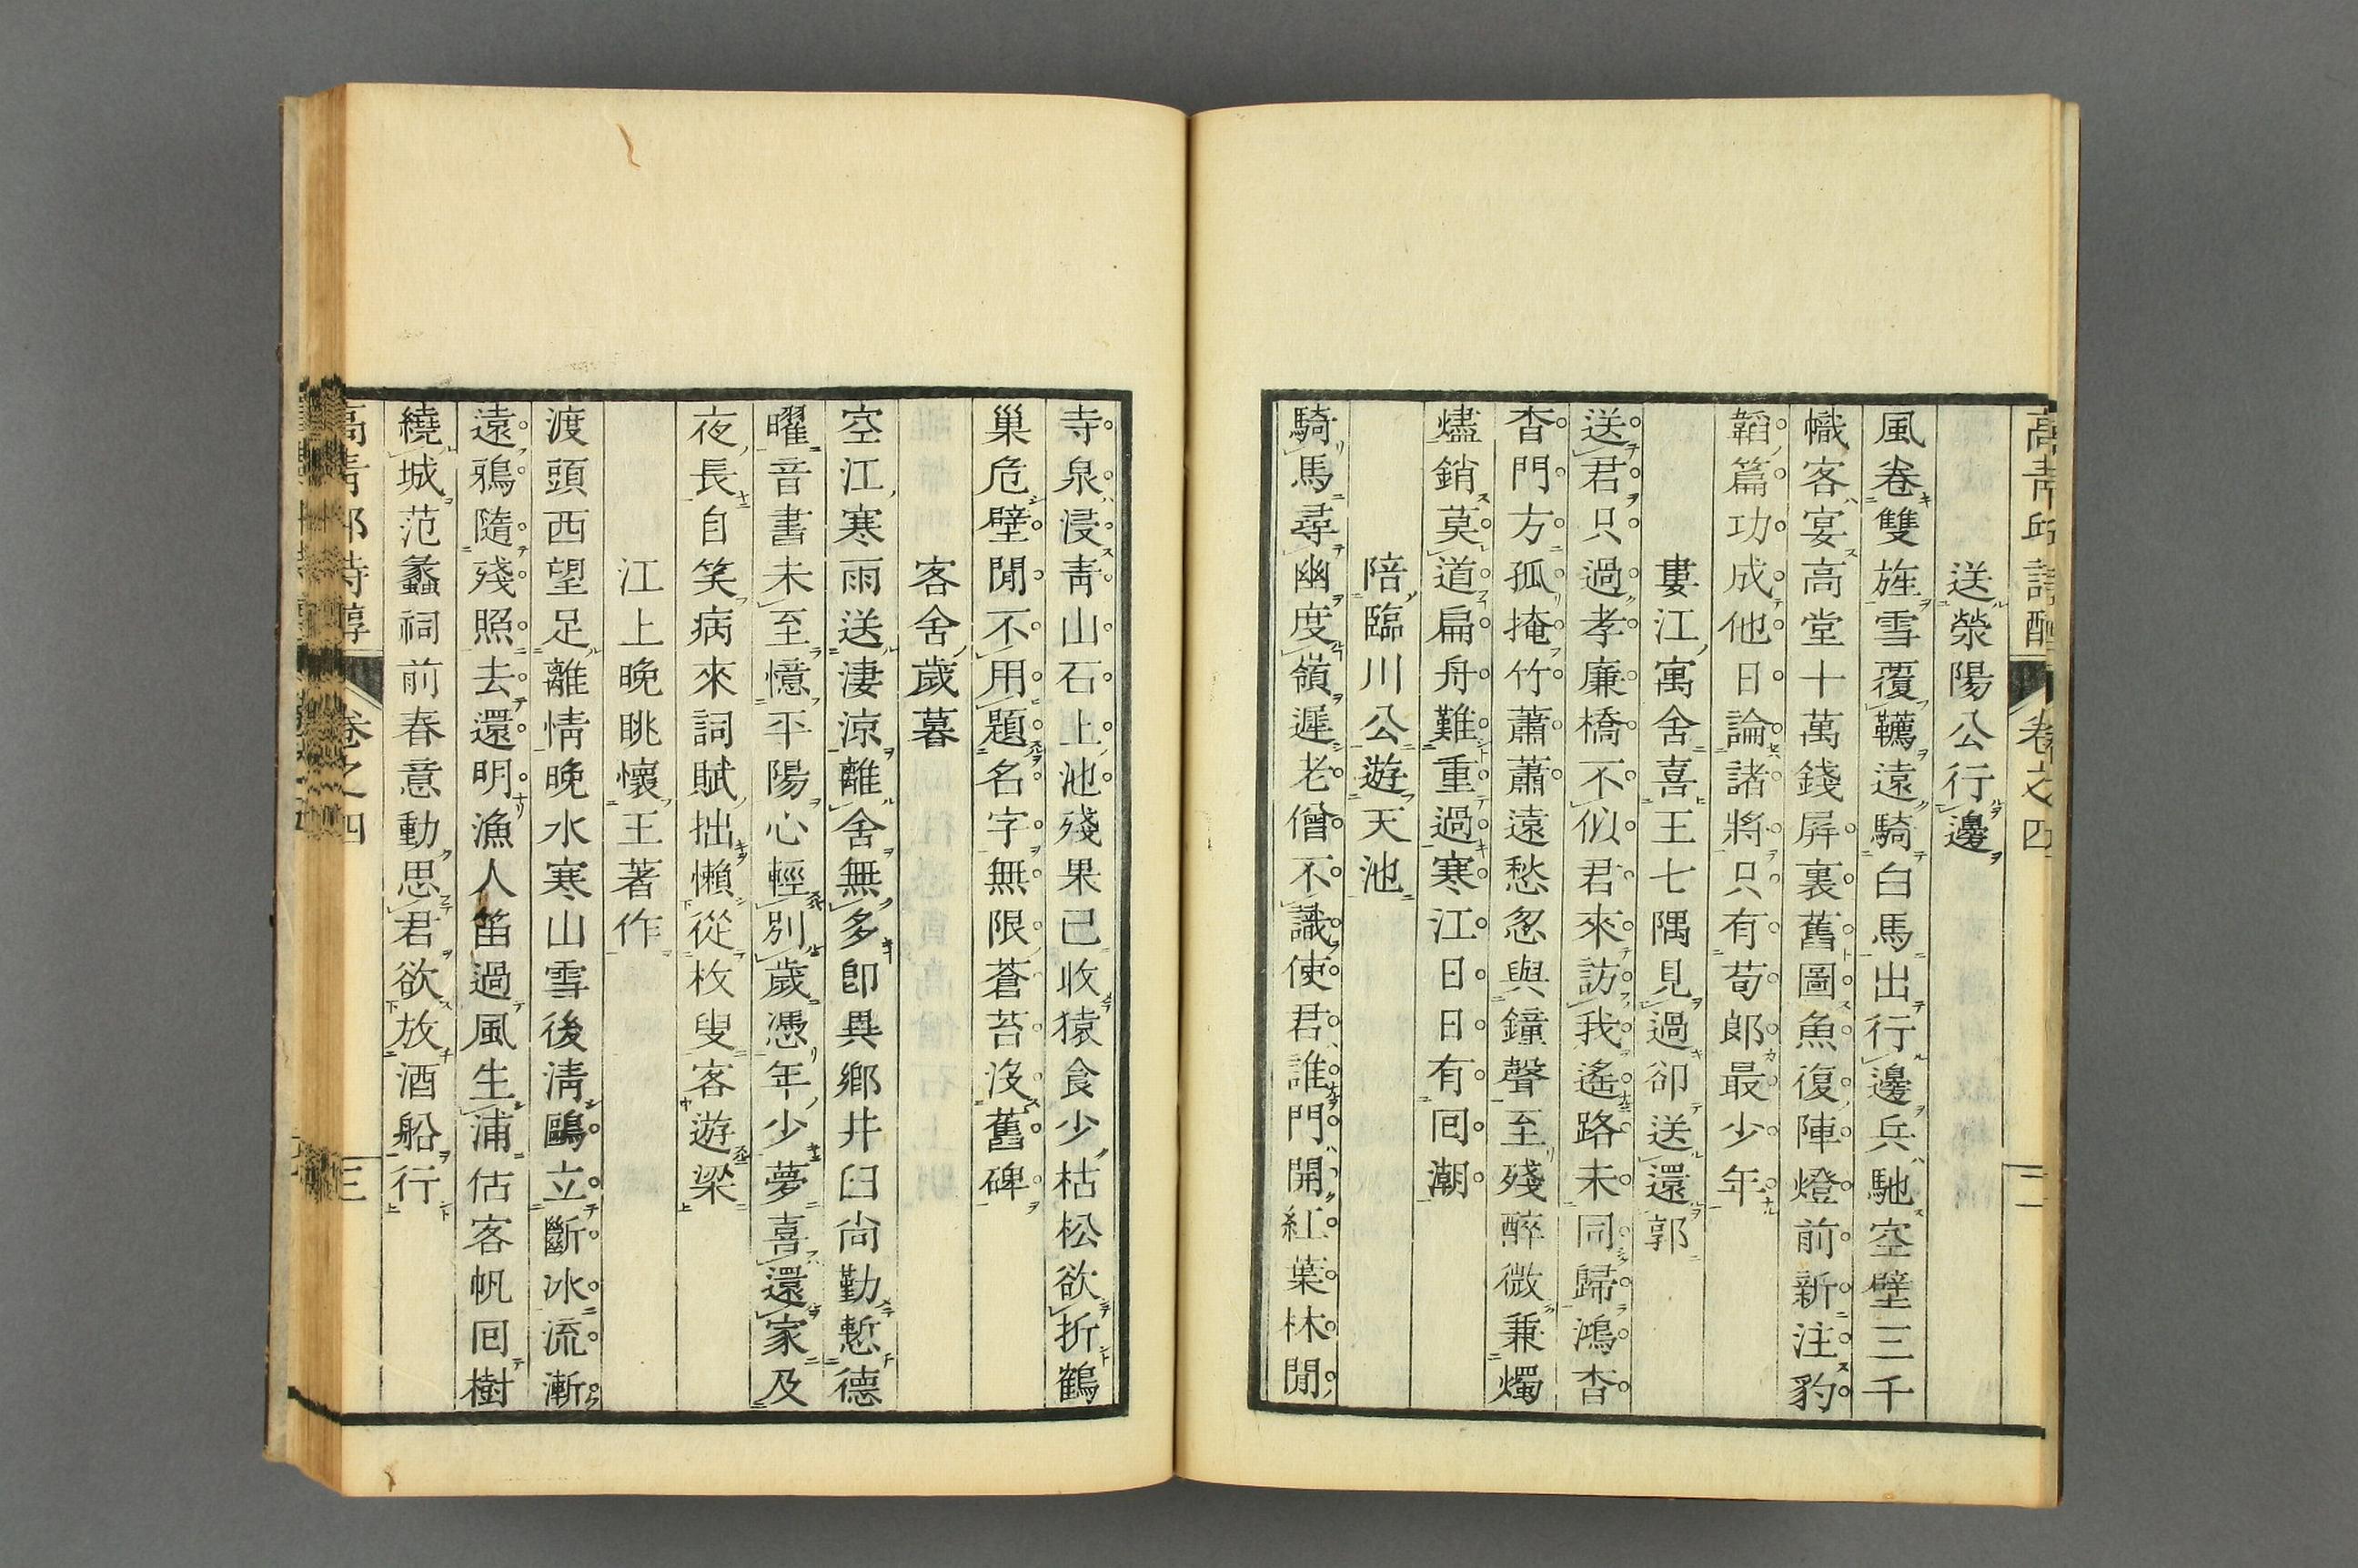 高青邱詩醇 卷之四 二
送榮陽公行邊
風卷雙旌雪覆韉遠騎白馬出行邊兵馳空壁三千
幟客宴高堂十萬錢屏裏舊圖魚復陣燈前新注豹
韜篇功成他日論諸將只有荀郎最少年
婁江寓舍喜王七隅見過卻送還郭
送君只過孝廉橋不似君來訪我遙路未同歸鴻杳
杳門方孤掩竹蕭蕭遠愁忽與鐘聲至殘醉微兼燭
燼銷莫道扁舟難重過寒江日日有囘潮
陪臨川公遊天池
騎馬尋幽度嶺遲老僧不識使君誰門開紅葉林閒
寺泉浸靑山石上池殘果已收猿食少枯松欲折鶴
巢危壁閒不用題名字無限蒼苔沒舊碑
客舍歲暮
空江寒雨送淒涼離舍無多卽異鄉井臼尙勤慙德
曜音書未至憶平陽心輕別歲憑年少夢喜還家及
夜長自笑病來詞賦拙懶從枚叟客遊梁
江上晚眺懷王著作
渡頭西望足離情晚水寒山雪後淸鷗立斷冰流漸
遠鴉隨殘照去還明漁人笛過風生浦估客帆囘樹
繞城范蠡祠前春意動思君欲放酒船行
高青邱詩醇 卷之四 三